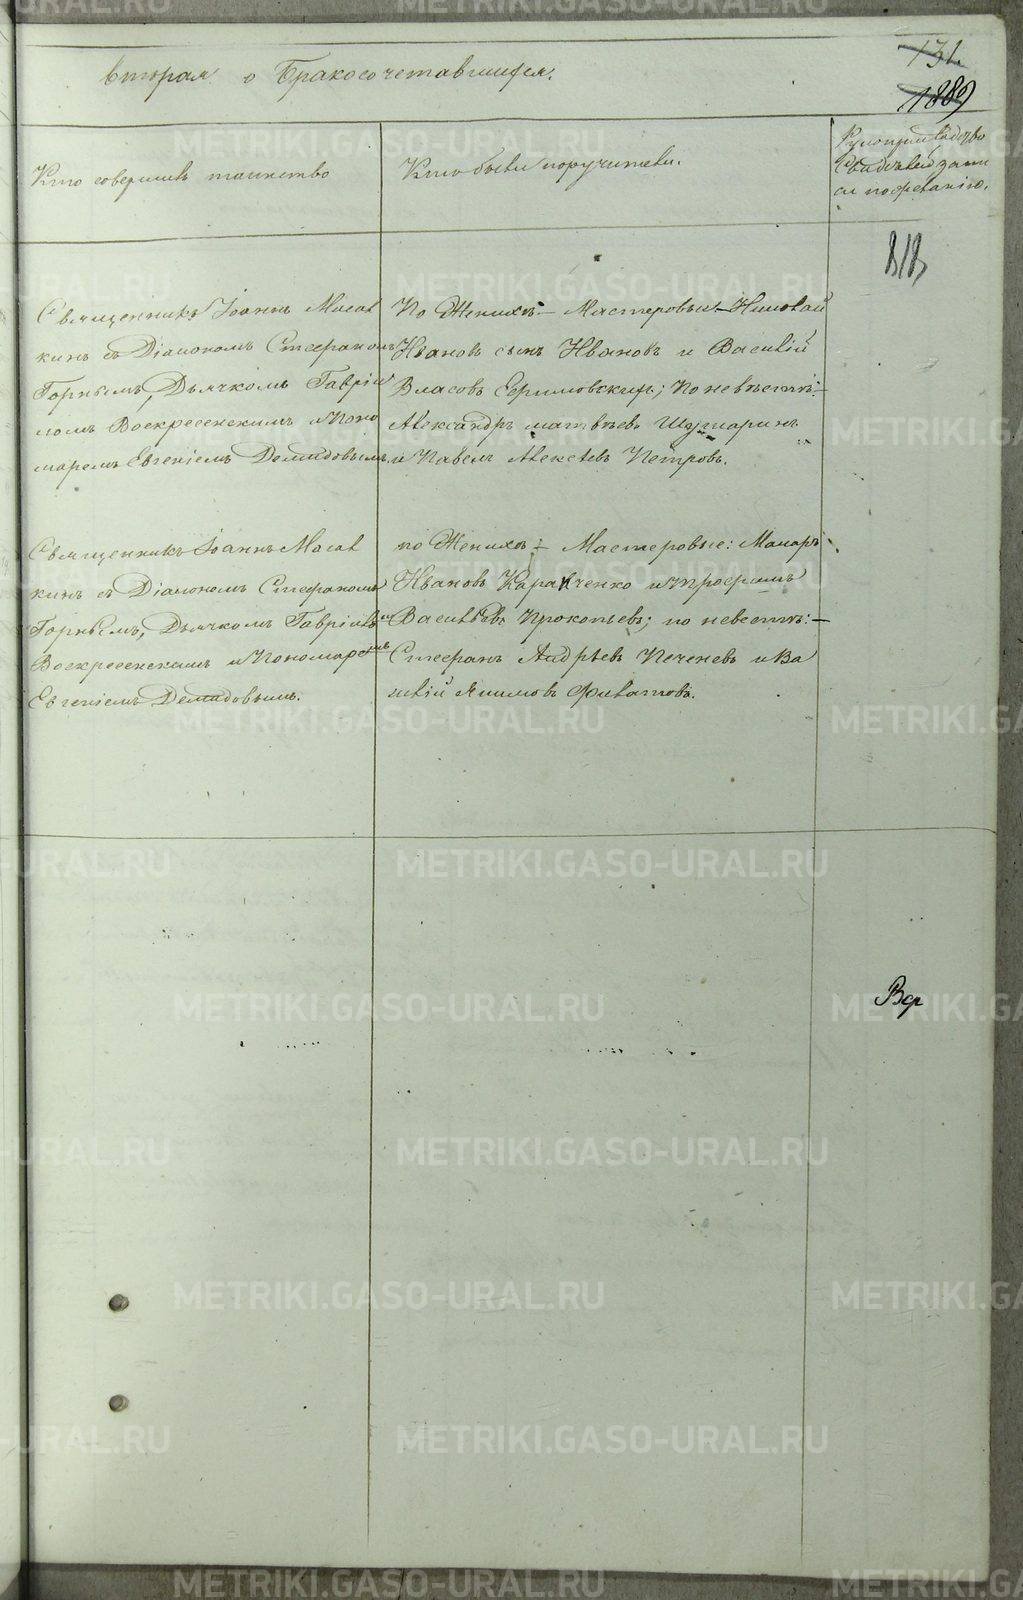 вторая о Бракосочетавшихся.
131.
1889
Кто совершилъ таинство
Кто были поручители.
Рукоприкладство
Свидѣтелей запи
си по желанію.
818
Священникъ Іоаннъ Масал
кинъ съ Діакономъ Стефаномъ
Горнымъ, Дьячкомъ Гавріи
ломъ Воскресенскимъ и Поно
маремъ Евгеніемъ Демидовымъ
По Женихѣ:— Мастеровые Николай
Ивановъ сынъ Ивановъ и Василій
Власовъ Ефимовскихъ; По невѣстѣ:—
Александръ Матвѣевъ
и Павелъ Алексѣевъ Петровъ.
Священникъ Іоаннъ Масал
кинъ съ Діакономъ Стефаномъ
Горнымъ, Дьячкомъ Гавріиломъ
Воскресенскимъ и Пономаремъ
Евгеніемъ Демидовымъ.
по Женихѣ:— Мастеровые: Макаръ
Ивановъ Кравченко и Трофимъ
Васильевъ Прокопьевъ; по невестѣ:—
Стефанъ Андрѣевъ Печеневъ и Ва
силій Якимовъ Филатовъ.
METRIKI.GASO-URAL.RU